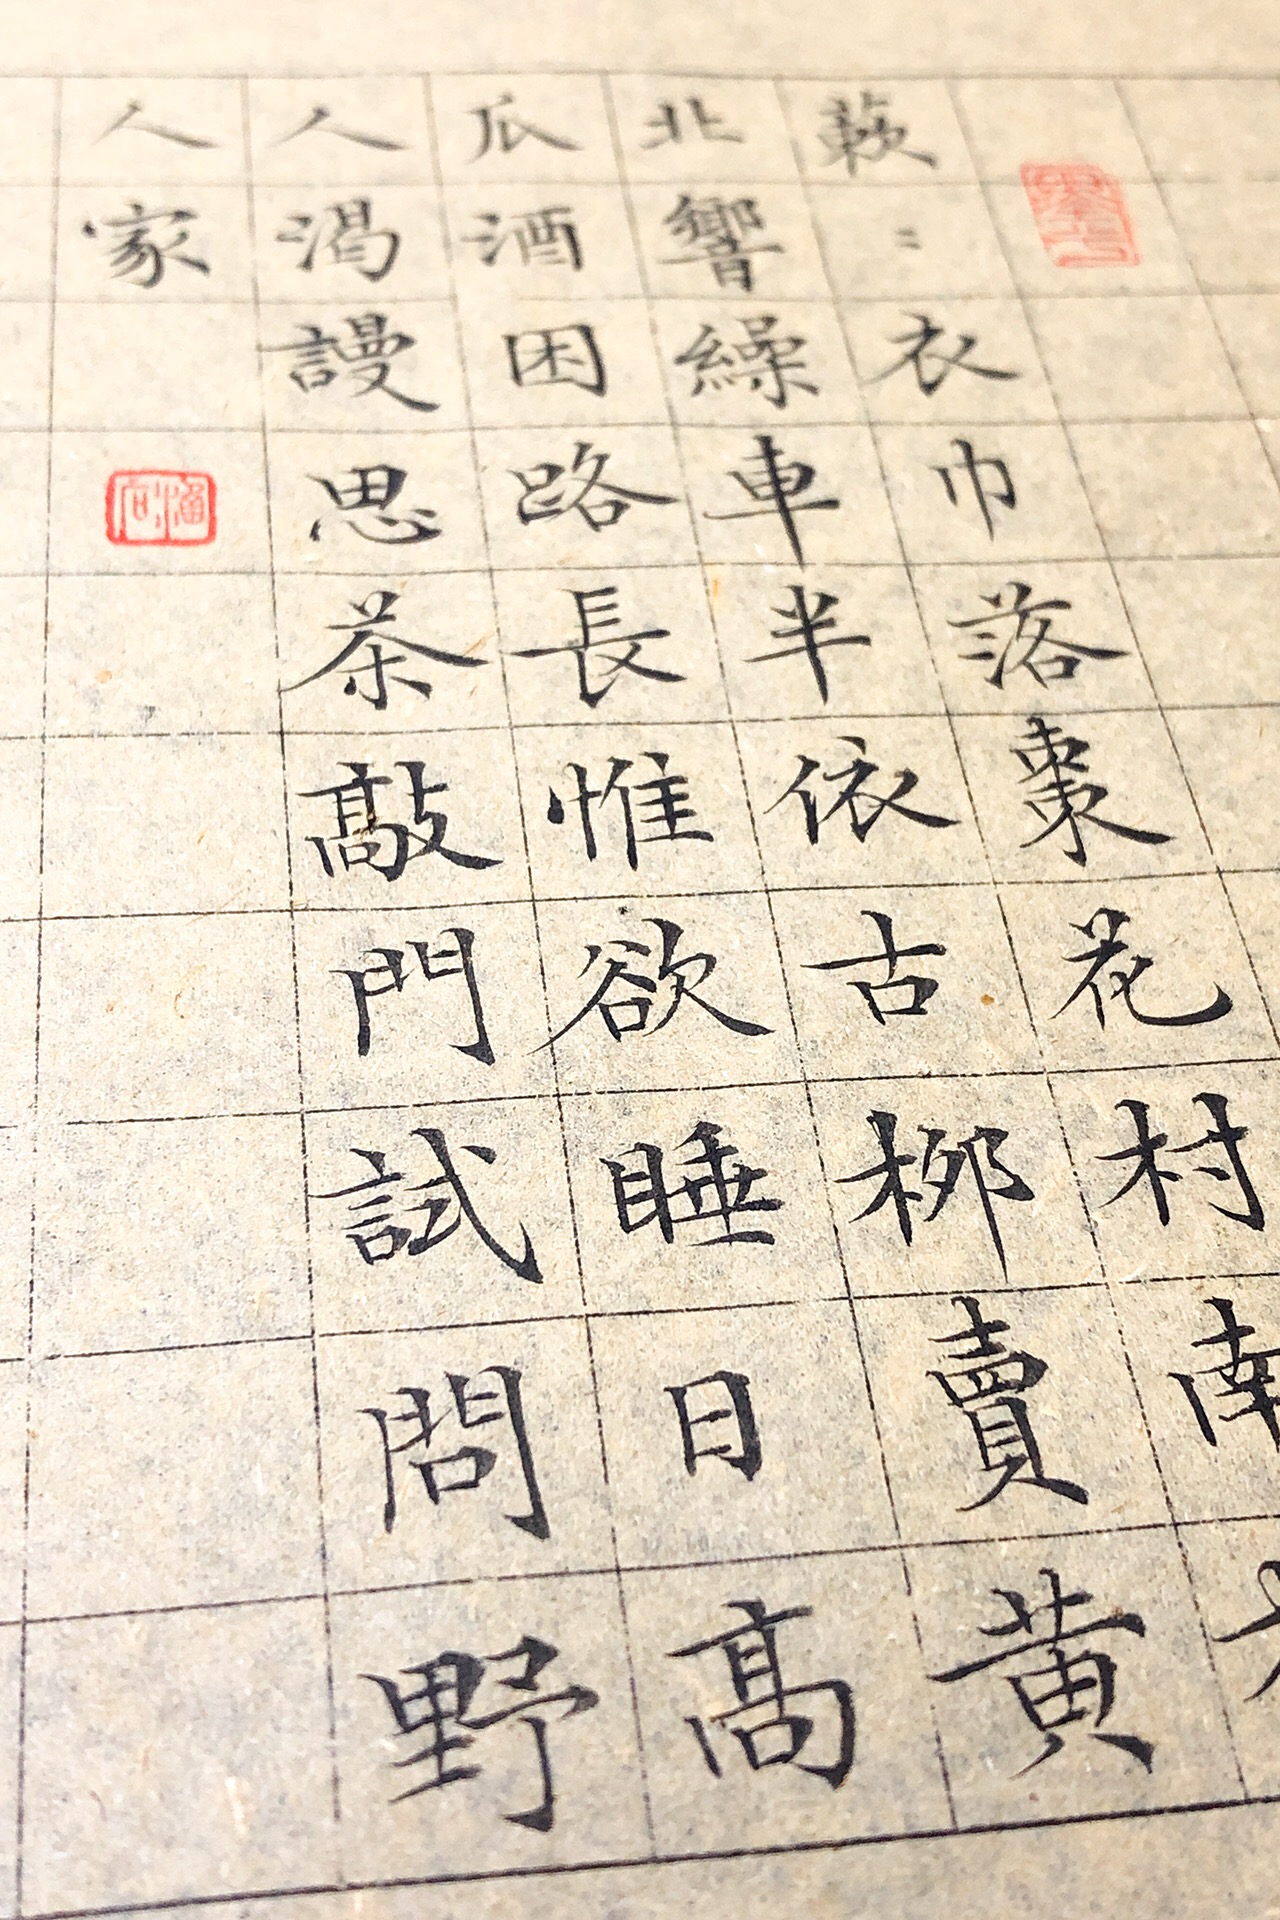 蔌〻衣巾落棗花村南
北響繰車半依古柳賣黄
瓜酒困路長惟欲睡日高
人渴謾思茶敲門試問野
人家